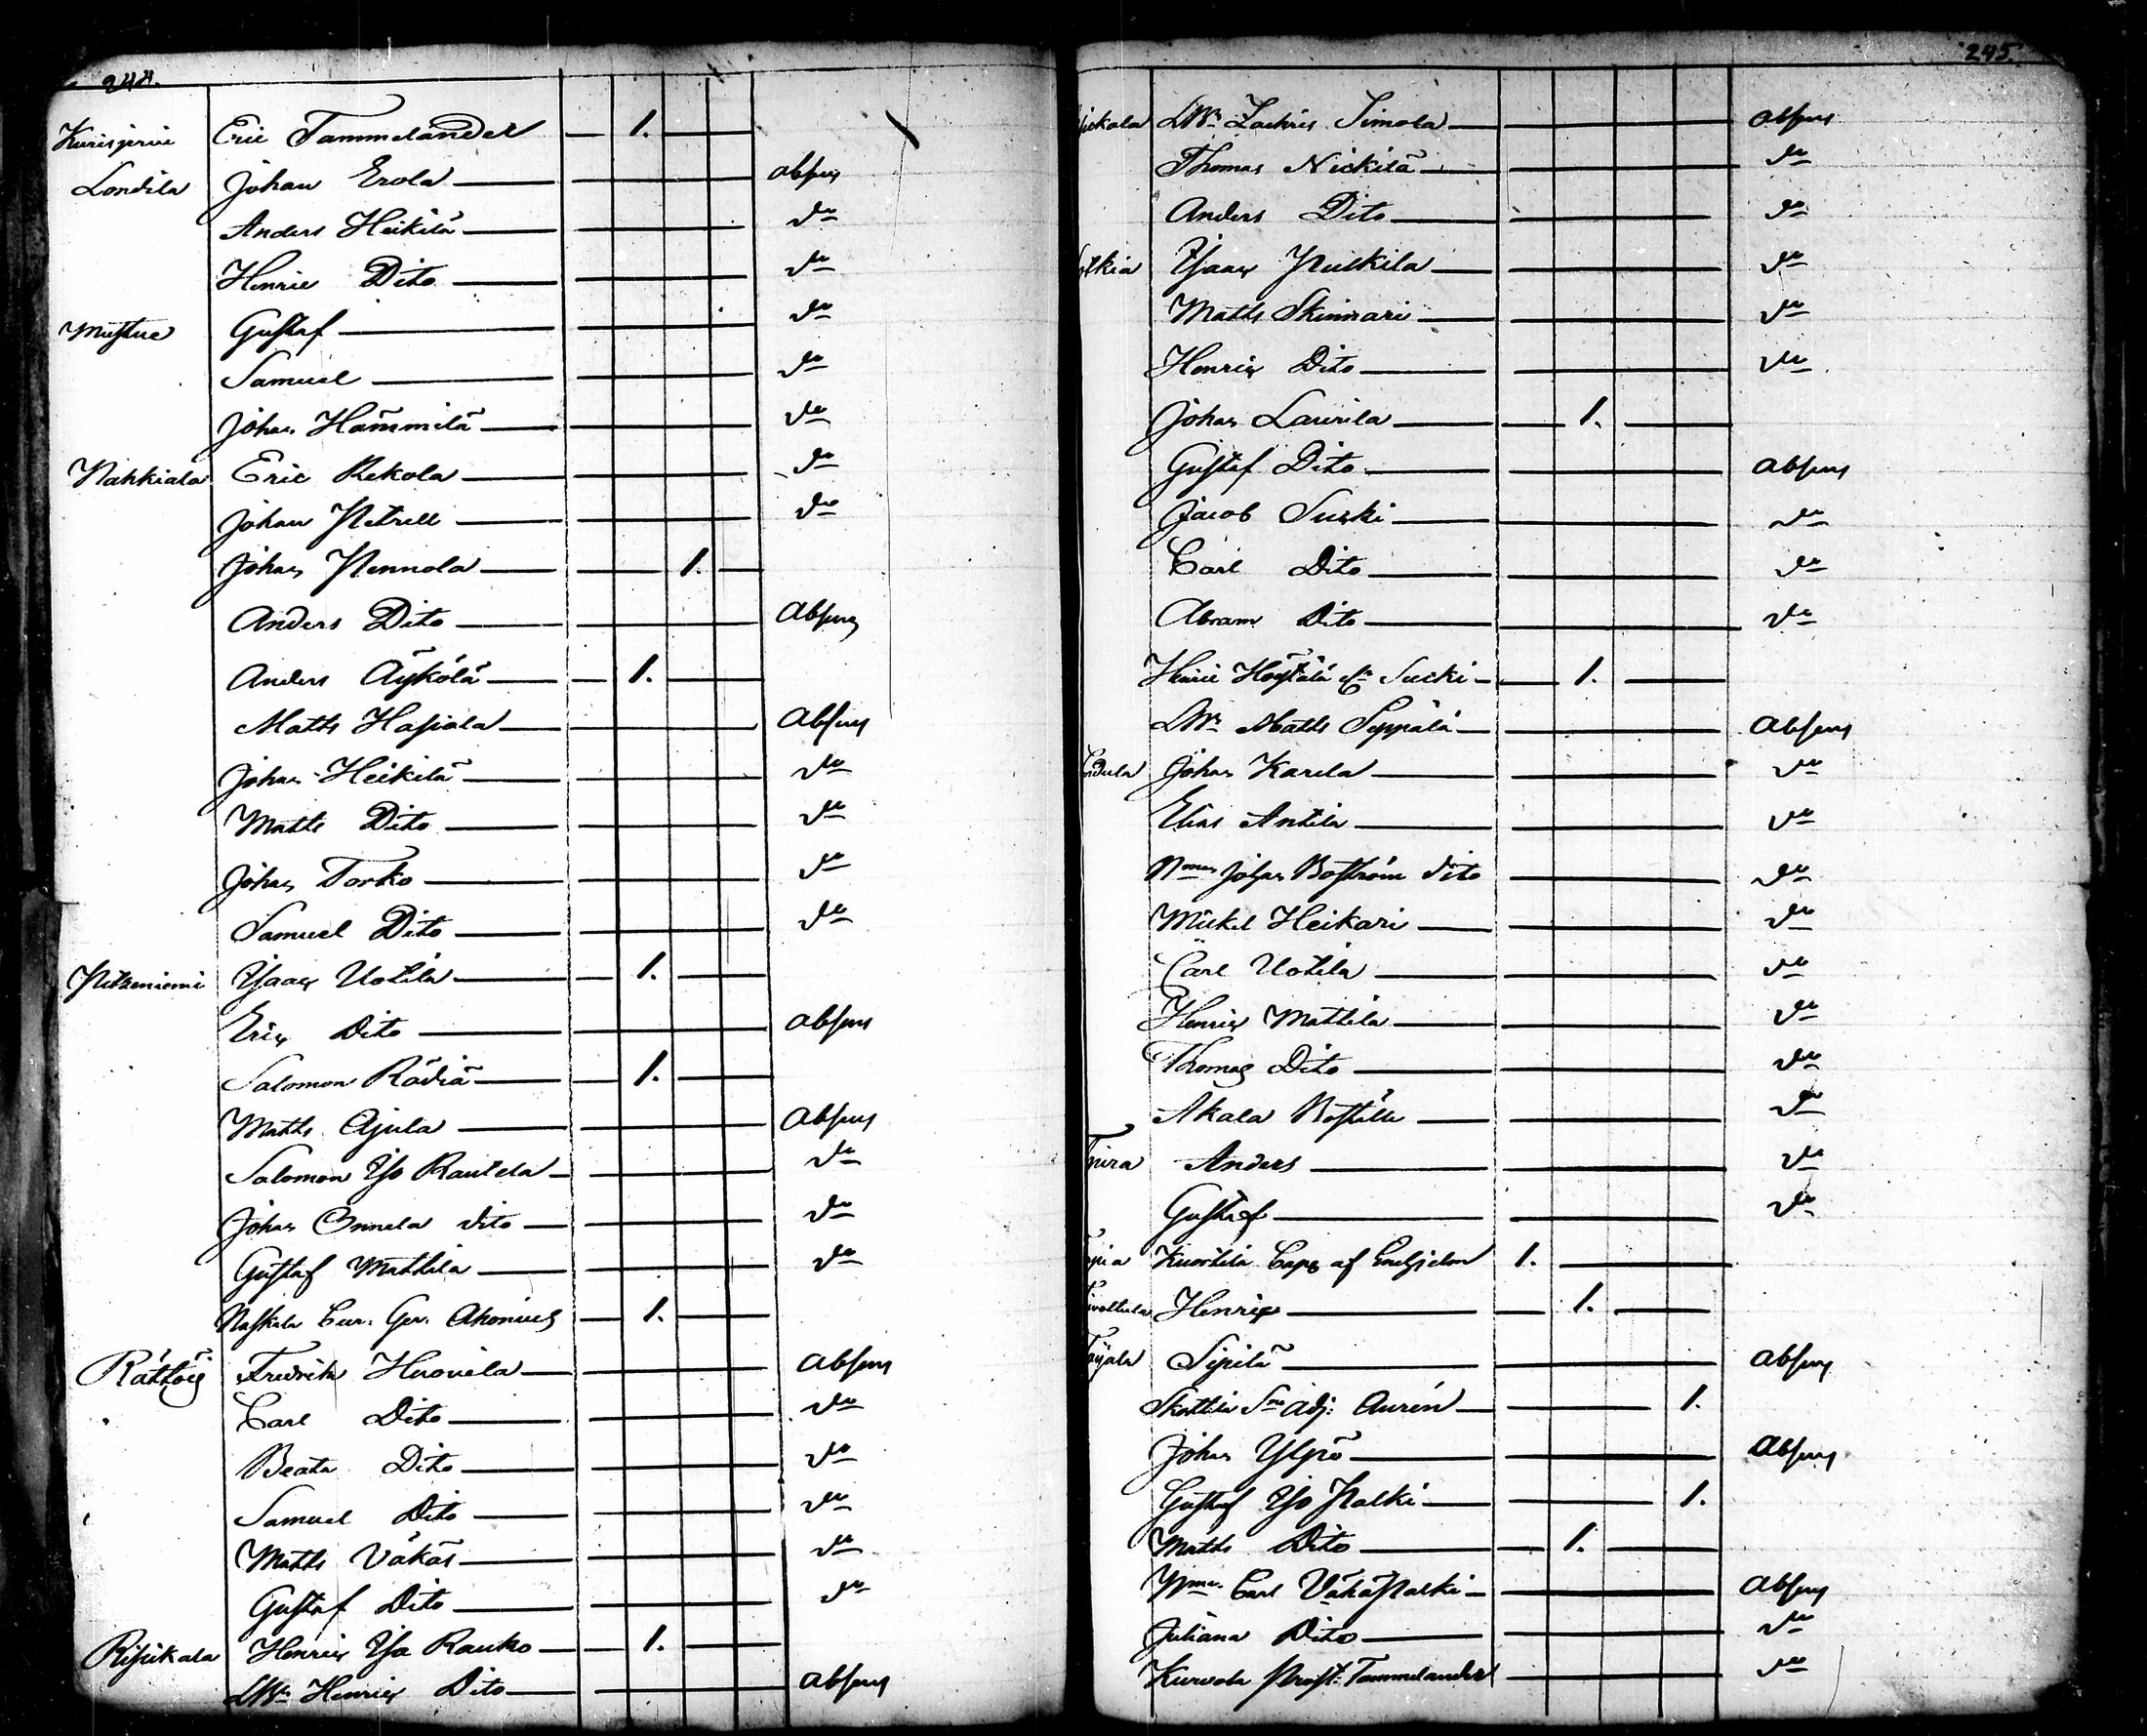 244.
Kurisjervi Eric Tammelander — 1. —
Londila Johan Erola — absens
Anders Heikilä — do
Henric Dito — do
Mustue Gustaf — do
Samuel — do
Johan Hämmilä — do
Nahkiala Eric Rekola — do
Johan Petrell — do
Johan Pennola — 1. —
Anders Dito — Absens
Anders Äykölä — 1. —
Matts Hapiala — Absens
Johan Heikilä — do
Matts Dito — do
Johan Torko — do
Samuel Dito — do
Pitkeniemi Isaac Uotila — 1. —
Eric Dito — absens
Salomon Rädiä — 1. —
Matts Ajula — Absens
Salomon Iso Rautela — do
Johan Onnela dito — do
Gustaf Mattila — do
Naskala Cur. Ger. Akonius — 1. —
Rättöis Fredrik Huovila — Absens
Carl Dito — do
Beata Dito — do
Samuel Dito — do
Matts Väkäs — do
Gustaf Dito — do
Risikala Henric Iso Rauko — 1. —
LMr Henric Dito — absens
245.
ickala LMr Zachris Simola — absens
Thomas Nickilä — do
Anders Dito — do
olkia Isaac Peickila — do
Matts Skinnari — do
Henric Dito — do
Johan Laurila — 1. —
Gustaf Dito — Absens
Jacob Sucki — do
Carl Dito — do
Abram Dito — do
Henric Höystälä Sucki — 1. —
LMr Matts Seppälä — Absens
Johan Karila — do
Elias Antila — do
Johan Boström dito — do
Mickel Heikari — do
Carl Uotila — do
Henric Mattila — do
Thomas Dito — do
Akala Boställe — do
Anders — do
Gustaf — do
Kuortila Cape af 1. —
Henric — 1. —
öyala Sipilä — Absens
Skottila adj: Aurén — 1.
Johan Ylpö — Absens
Gustaf Iso Palki — 1.
Matts Dito — 1. —
Carl VähäPalki — Absens
Juliana Dito — do
Kurvola Prost: Tammelander — do